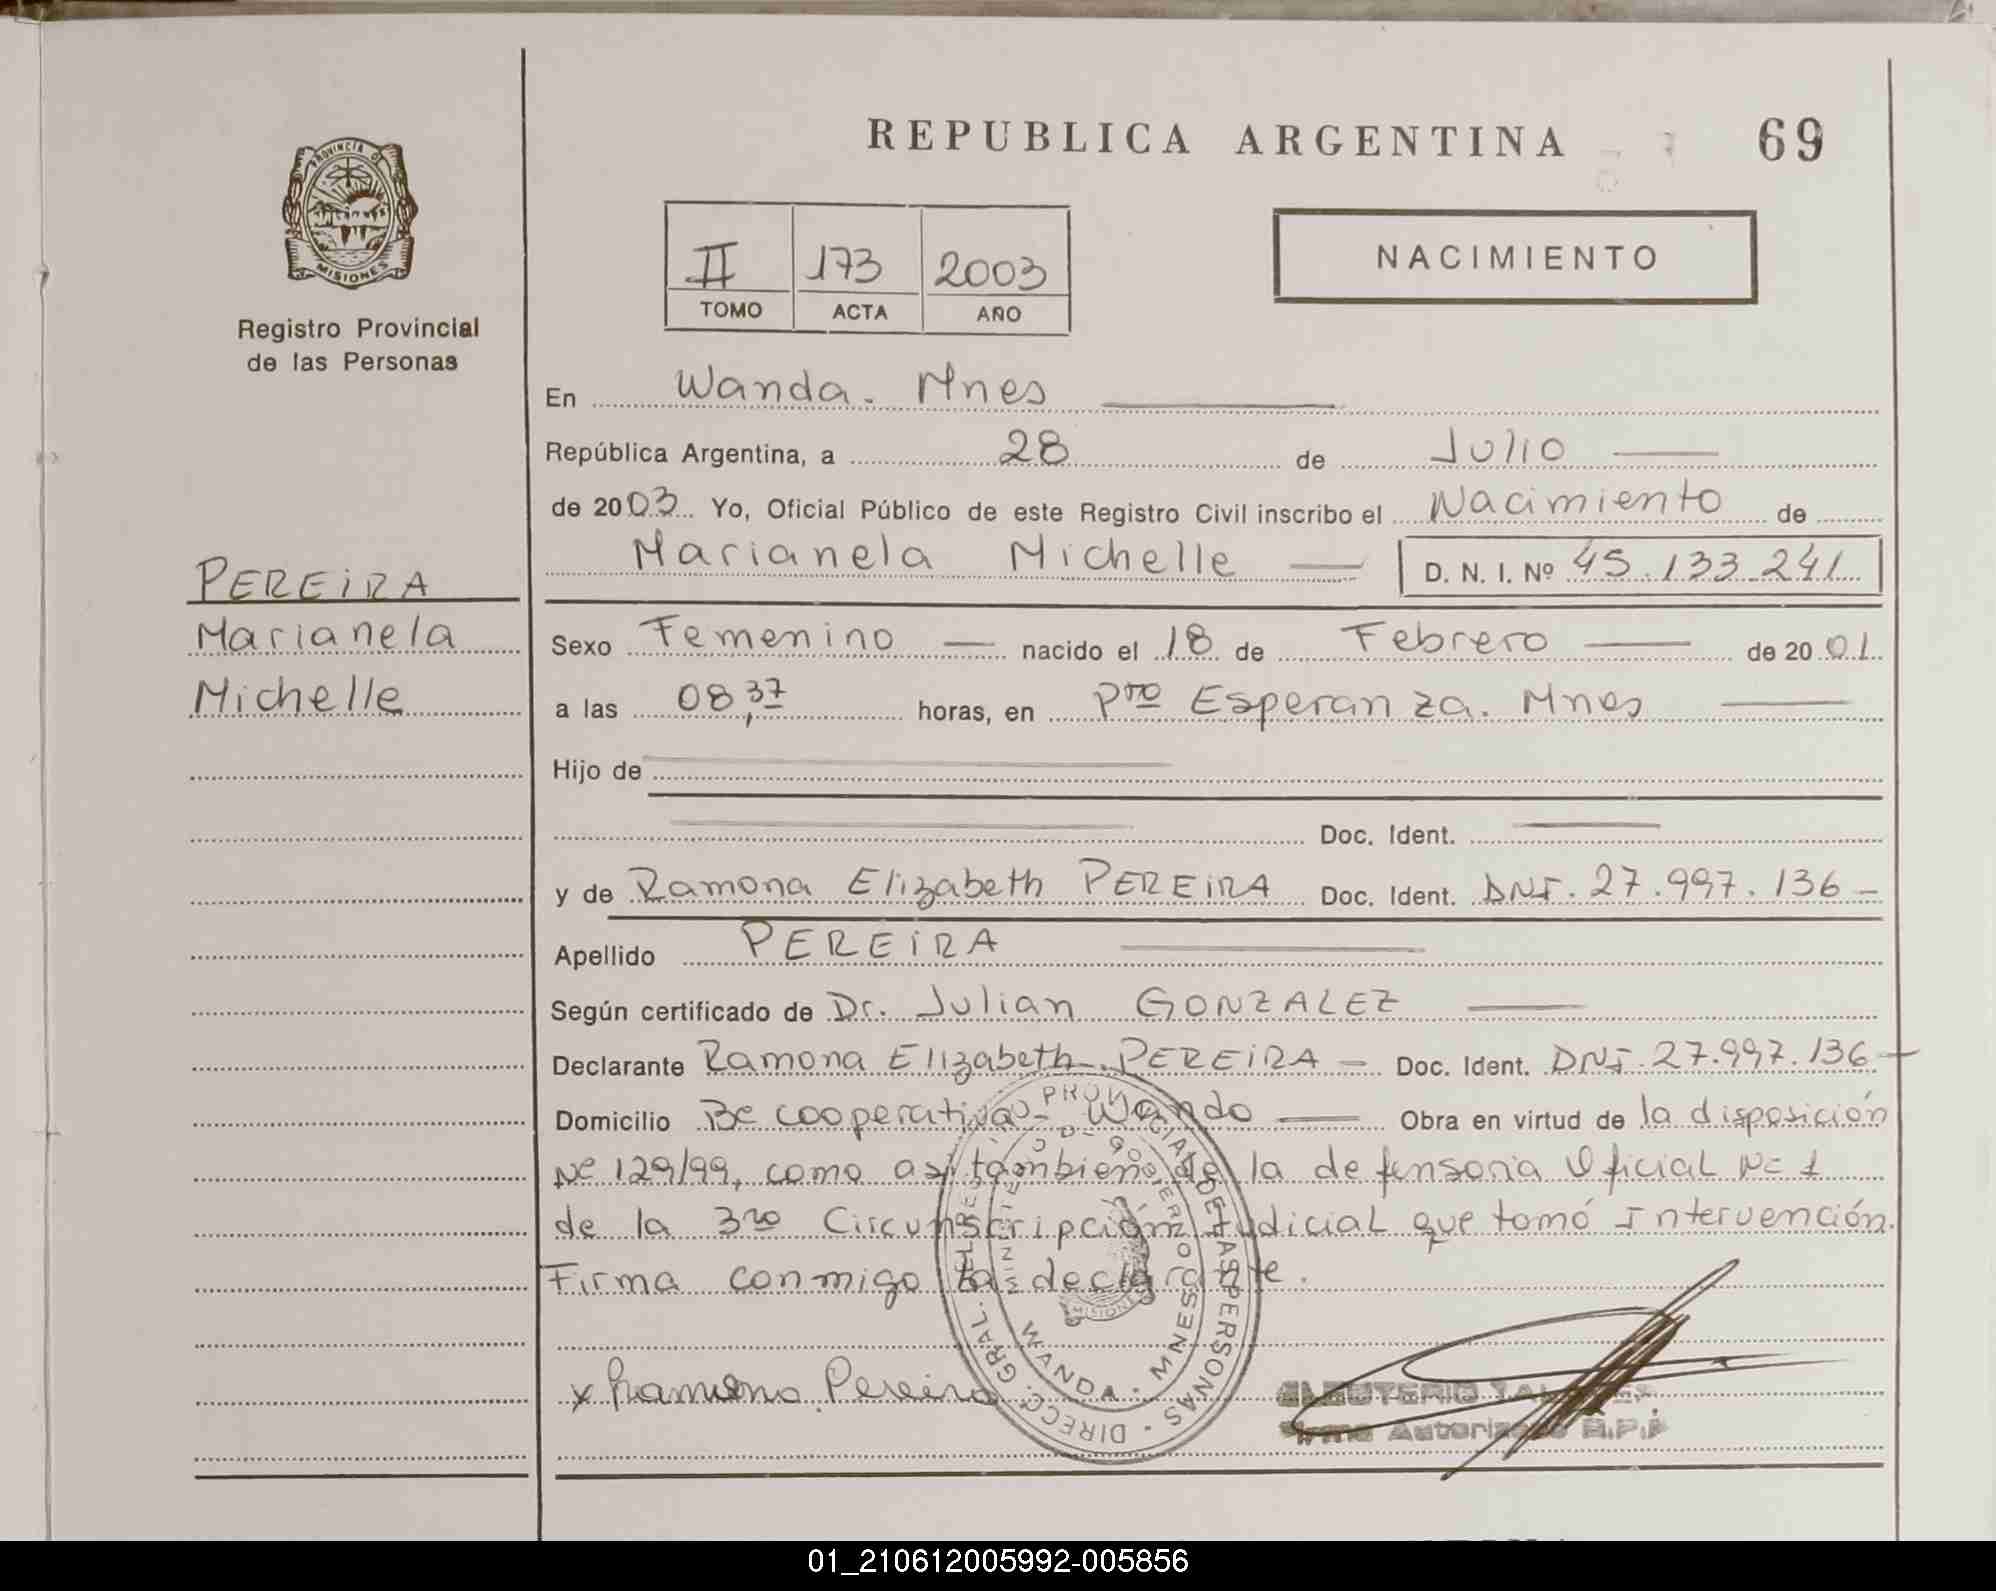 REPUBLICA ARGENTINA
69
PROVINCIA D
MISIONES
Registro Provincial
de las Personas
II 173 2003
TOMO ACTA AÑO
NACIMIENTO
En Wanda. Mnes
República Argentina, a 28 de Julio
de 2003 Yo, Oficial Público de este Registro Civil inscribo el Nacimiento de
Marianela Michelle D. N. I. Nº 45.133.241
PEREIRA
Marianela
Michelle
Sexo Femenino nacido el 18 de Febrero de 2001
a las 08,37 horas, en Pto Esperanza. Mnes
Hijo de
Doc. Ident.
y de Ramona Elizabeth PEREIRA Doc. Ident. DNI. 27.997.136
Apellido PEREIRA
Según certificado de Dr. Julian GONZALEZ
Declarante Ramona Elizabeth PEREIRA Doc. Ident. DNI. 27.997.136
Domicilio Bº cooperativa - Wanda Obra en virtud de la disposición
Nº 129/99, como asi tambien de la defensoria Oficial Nº 1
de la 3ra Circunscripción Judicial que tomó Intervención.
Firma conmigo la declarante.
x Ramona Pereira
DIRECC. GRAL. DEL REG. PROVINCIAL DE LAS PERSONAS
WANDA - MNES
MISIONES
ELEUTERIO
Firma Autorizada R.P.P.
01_210612005992-005856